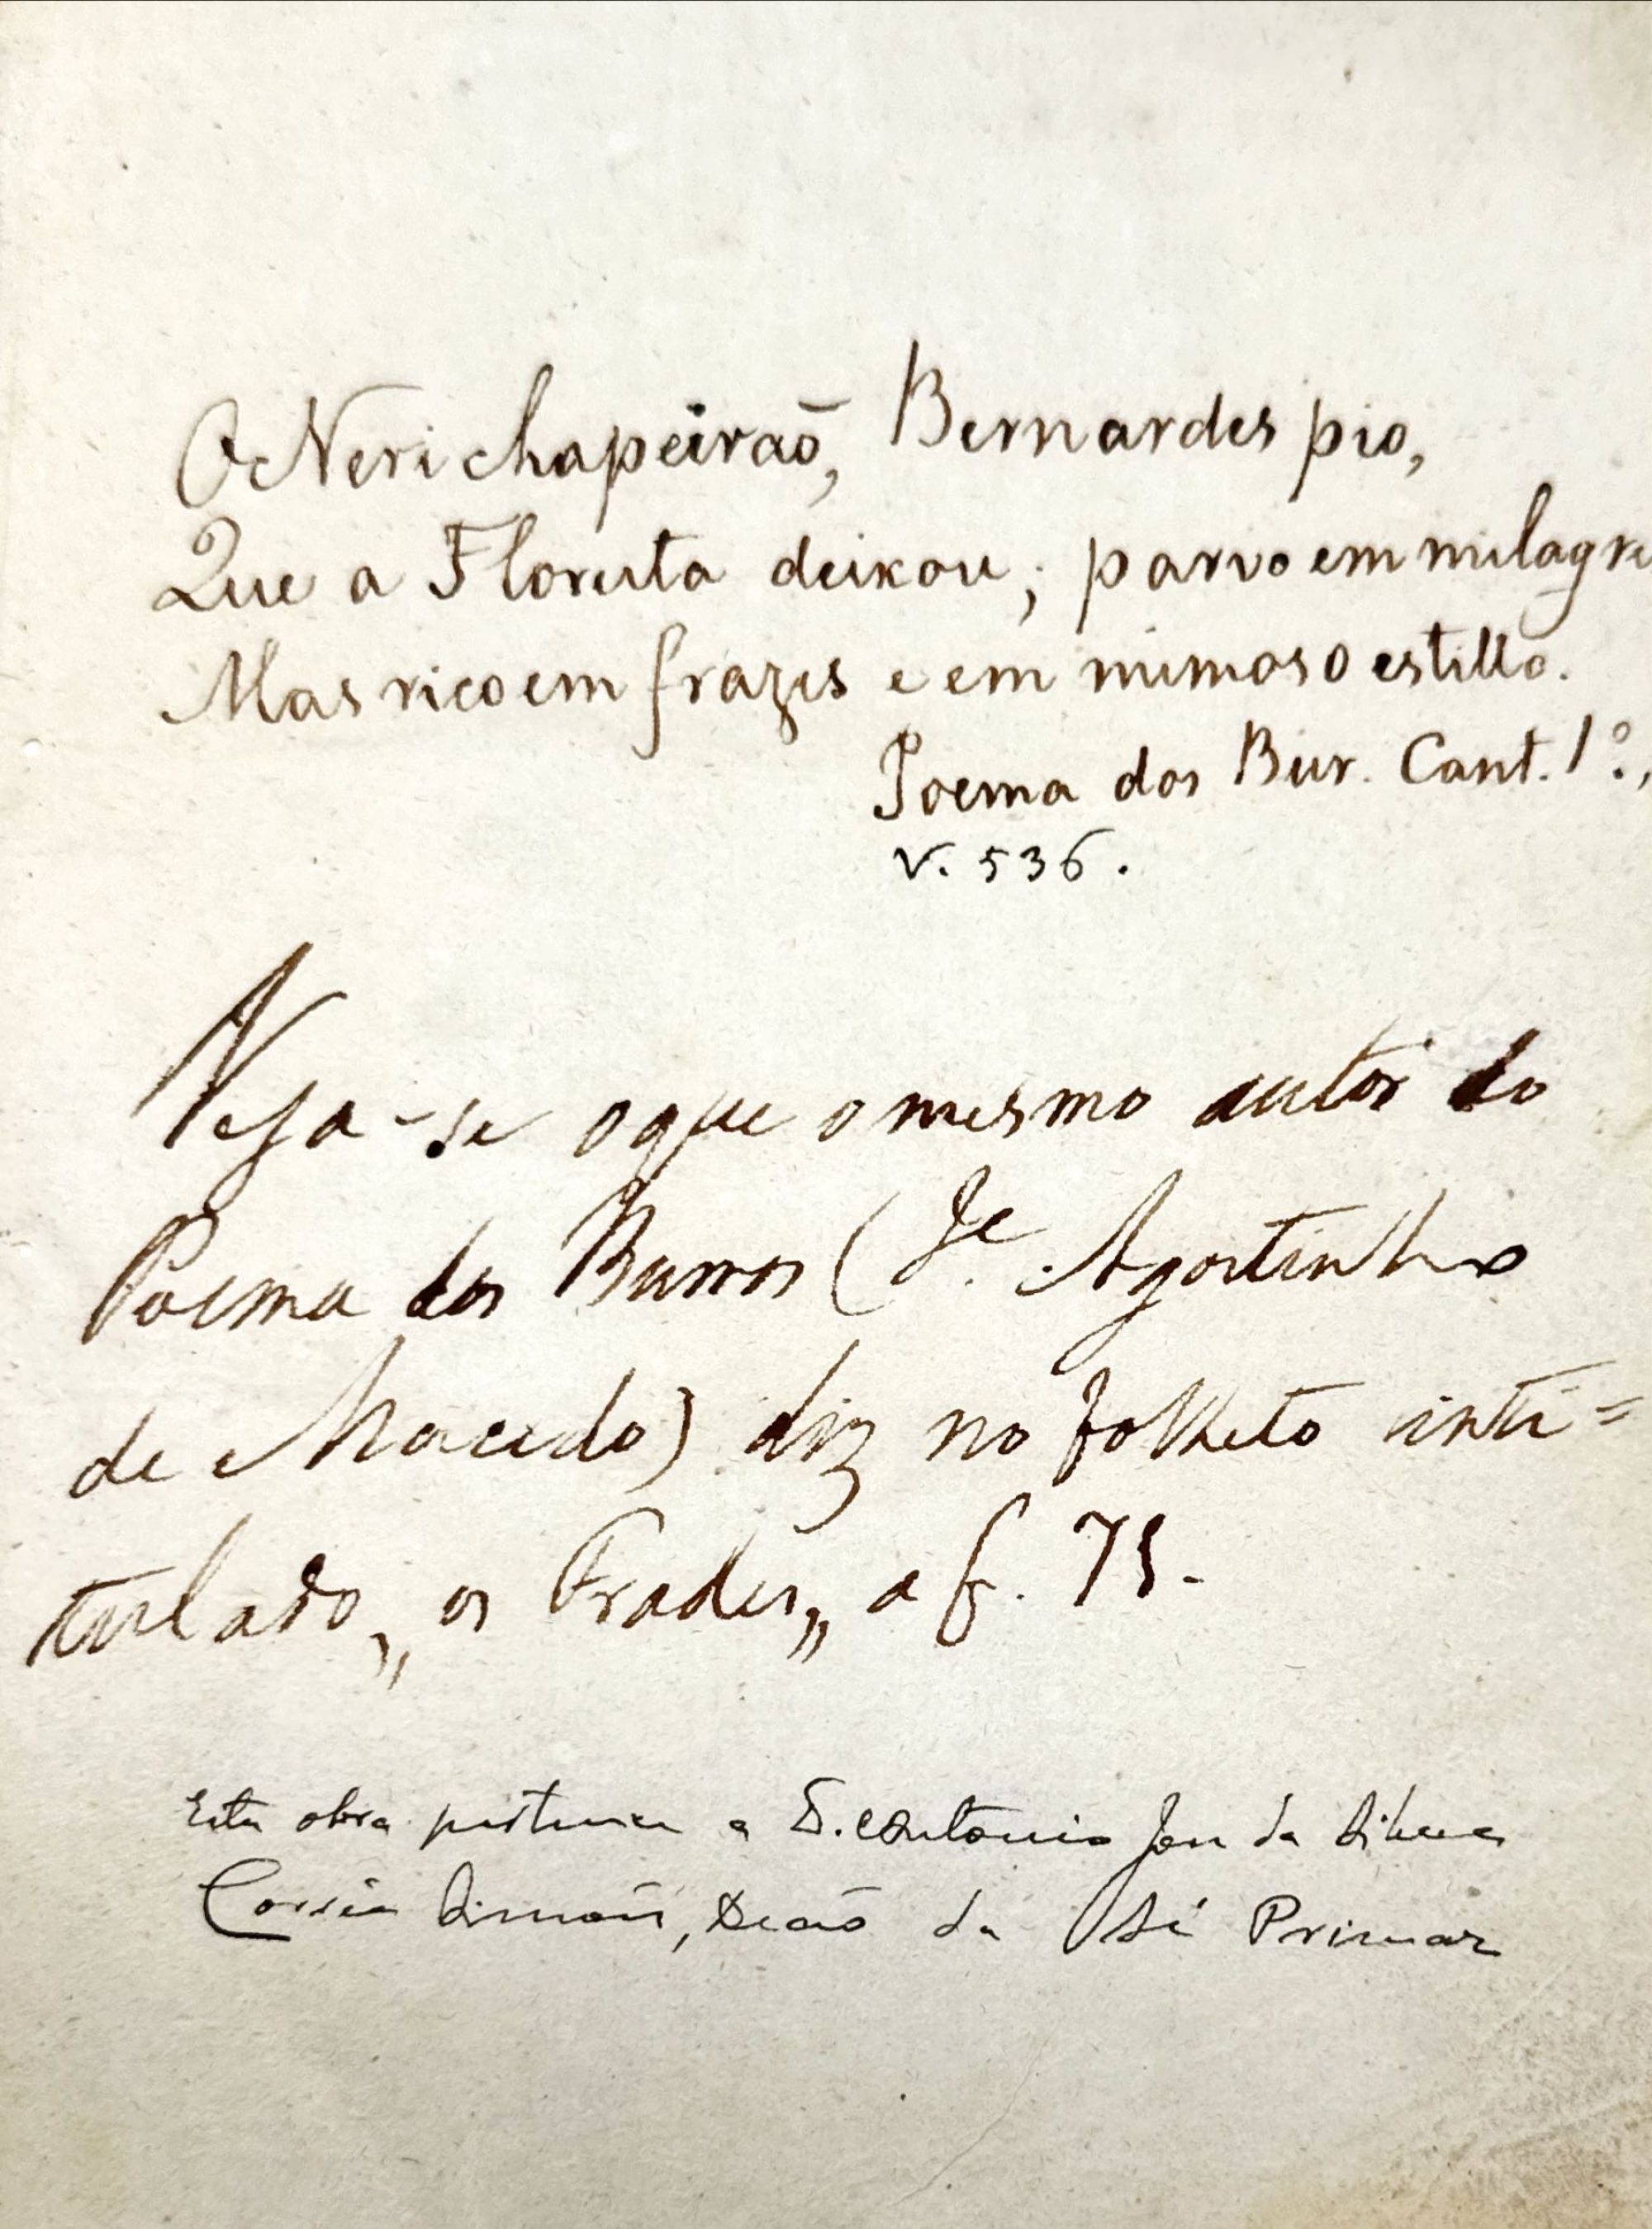 O Neri chapeiraõ, Bernardes pio,
Que a Floresta deixou; parvo em milagre
Mas rico em frazes e em mimoso estillo.
Poema dos Bur. Cant. 1º,
v. 536.
Veja-se o que o mesmo autor do
Poema dos Burros (Je. Agostinho
de Macedo) diz no folheto inti=
tulado „ os Frades„ a f. 75.
Esta obra pertence a D. Antonio José da Silva
Correia Simões, Deão da Sé Primaz